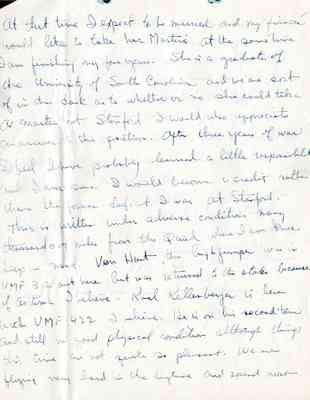 At that time I expect to be married and my fiancée
would like to take her Masters at the same time
I am finishing my law years. She is a graduate of
the University of South Carolina and we are sort
of in the dark as to whether or no she could take
a master at Stanford. I would also appreciate
an answer to this problem. After three years of war
I feel I have probably learned a little responsibility
and I am sure I would become a credit rather
than the
deficit I was at Stanford.
This is written under adverse conditions many
thousands of miles from the Quad
Van
the high jumper was in
VMF 312 out here but was returned to the states because
of
I believe. Karl
is here
with VMF 422 I believe. He is on his second tour
and still in good physical condition although things
this time are not quite so pleasant. We are
flying very hard in the daytime and sound